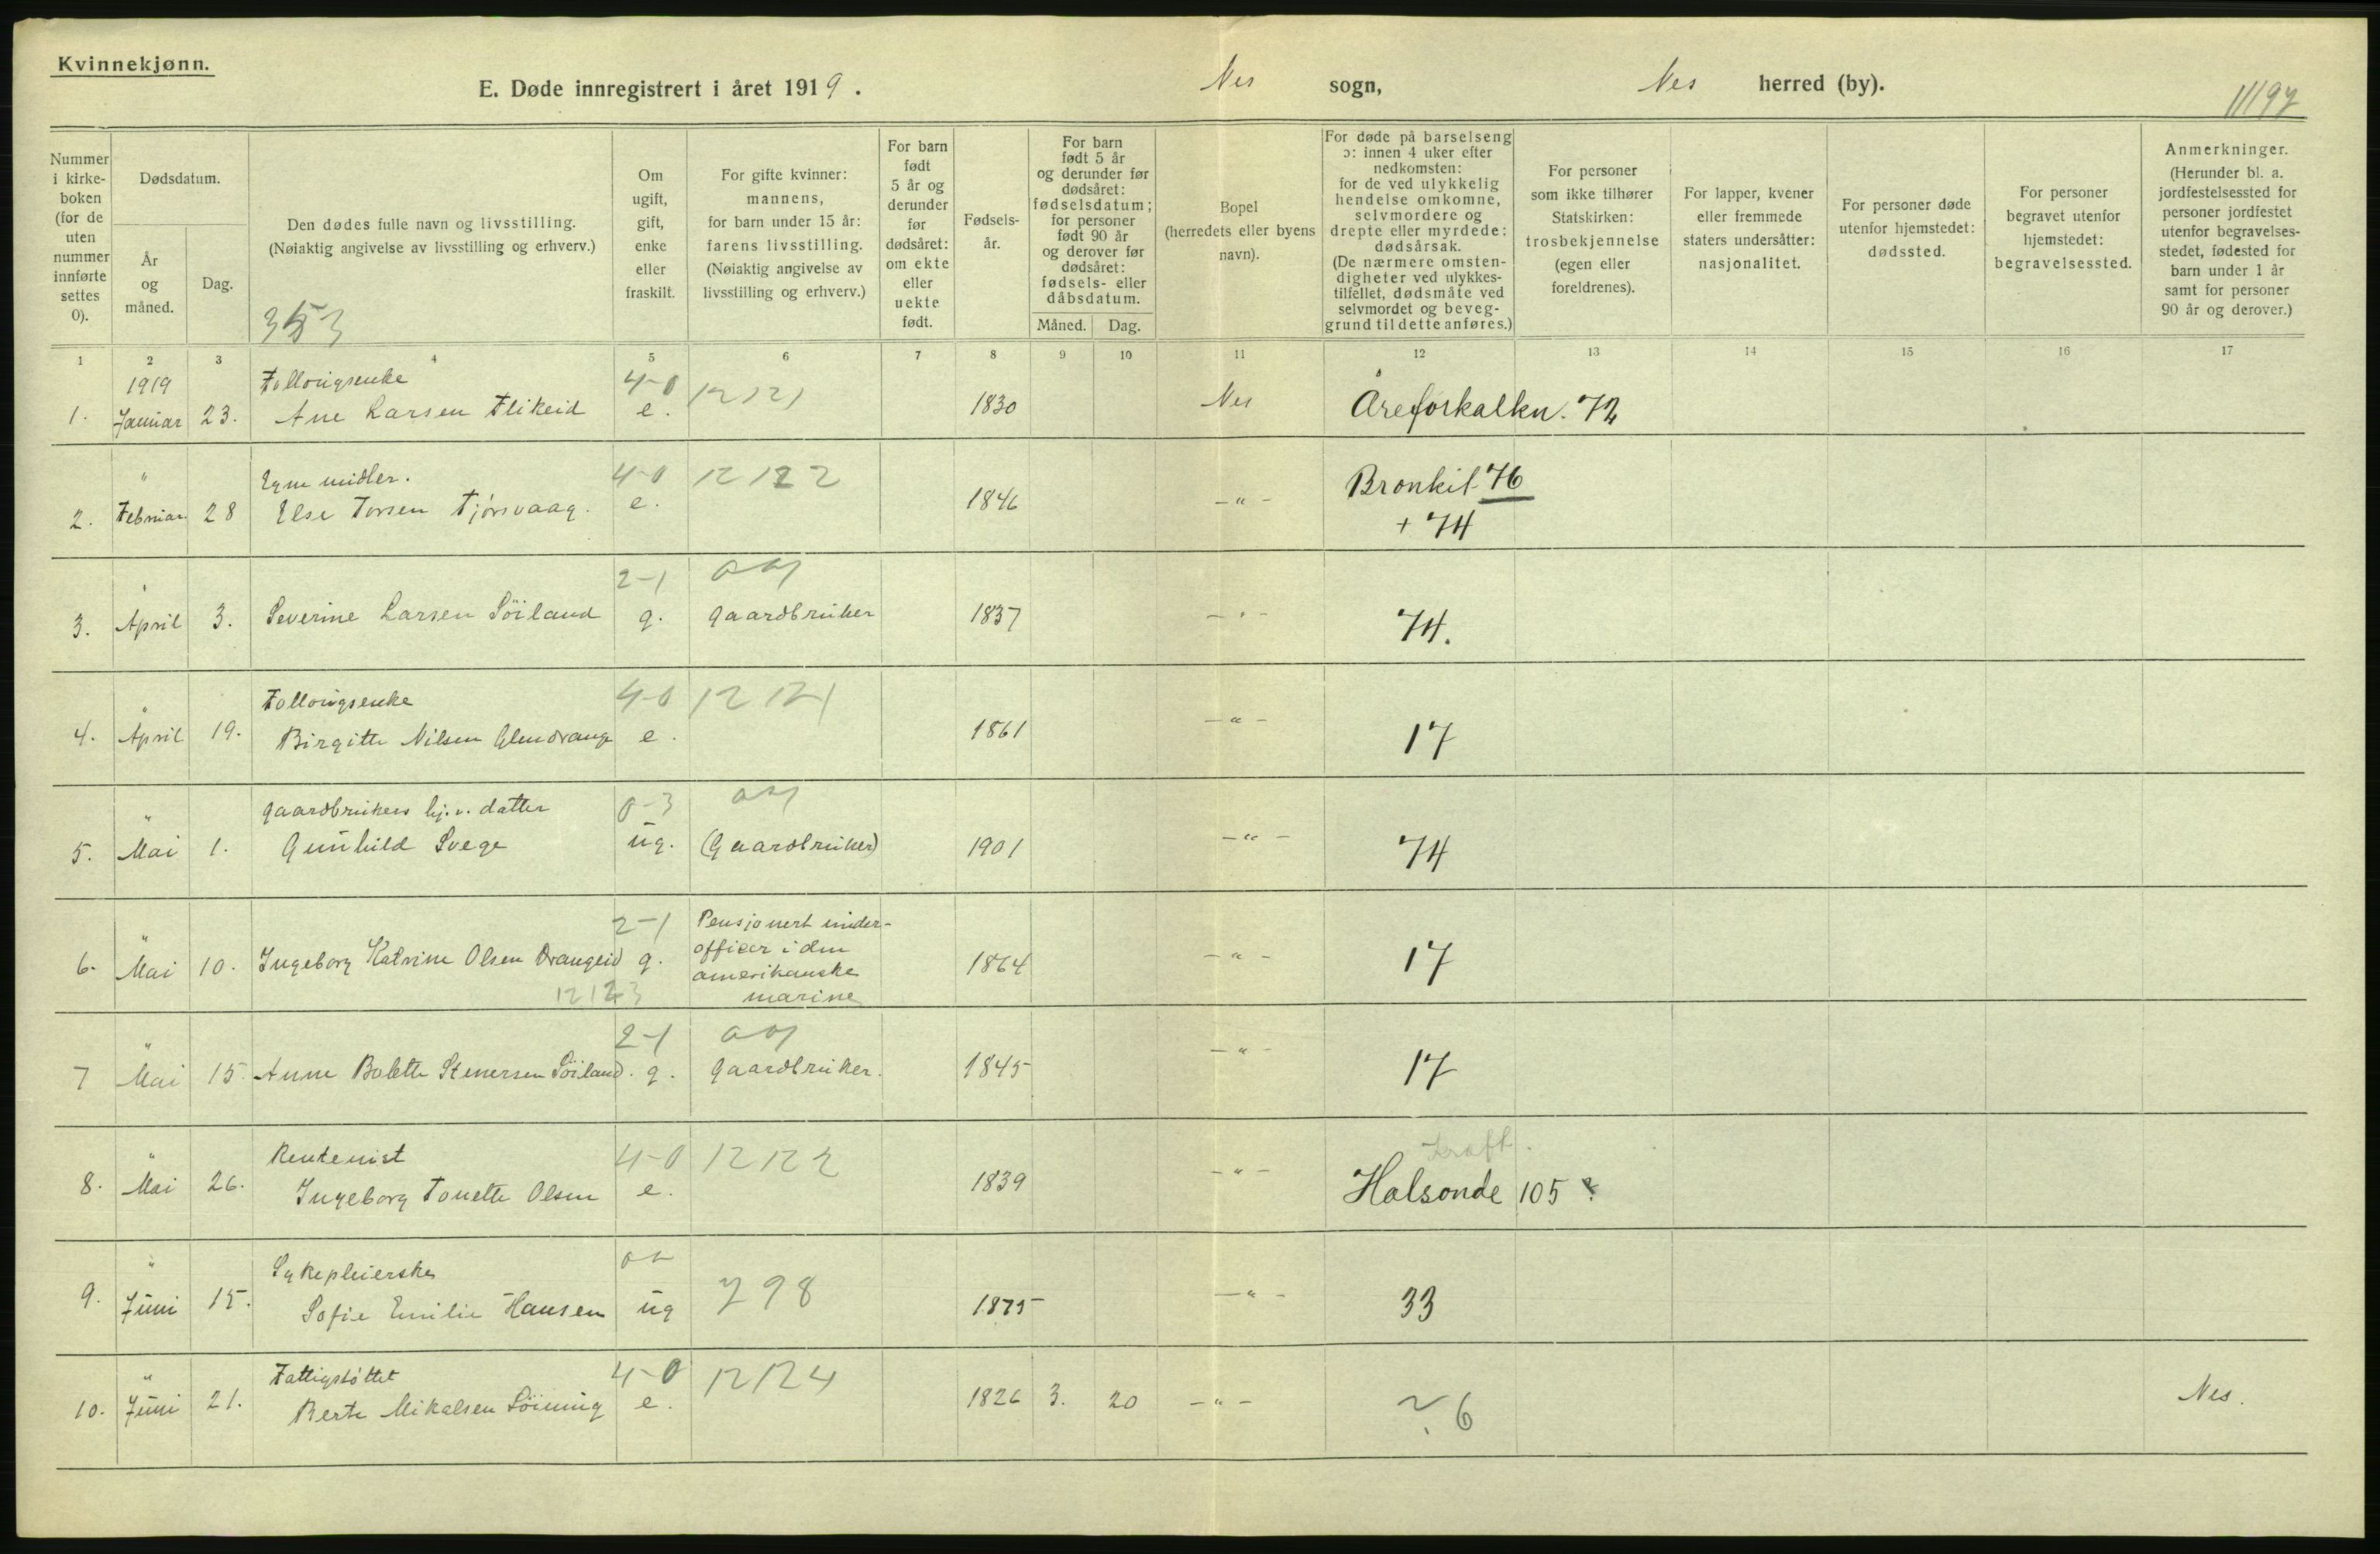 Kvinnekjønn.
E. Døde innregistrert i året 1919. Nes sogn, Nes herred (by).
11197
Nummer i kirke-boken (for de uten nummer innførte settes 0).
Dødsdatum.
År og måned.
Dag.
Den dødes fulle navn og livsstilling.
(Nøiaktig angivelse av livsstilling og erhverv.)
353
Om ugift, gift, enke eller fraskilt.
For gifte kvinner: mannens, for barn under 15 år: farens livsstilling. (Nøiaktig angivelse av livsstilling og erhverv.)
For barn født 5 år og derunder før dødsåret: om ekte eller uekte født.
Fødsels-år.
For barn født 5 år og derunder før dødsåret: fødselsdatum; for personer født 90 år og derover før dødsåret: fødsels- eller dåbsdatum.
Måned. Dag.
Bopel (herredets eller byens navn).
For døde på barselseng ɔ: innen 4 uker efter nedkomsten: for de ved ulykkelig hendelse omkomne, selvmordere og drepte eller myrdede: dødsårsak. (De nærmere omsten-digheter ved ulykkes-tilfellet, dødsmåte ved selvmordet og beveg-grund til dette anføres.)
For personer som ikke tilhører Statskirken: trosbekjennelse (egen eller foreldrenes).
For lapper, kvener eller fremmede staters undersåtter: nasjonalitet.
For personer døde utenfor hjemstedet: dødssted.
For personer begravet utenfor hjemstedet: begravelsessted.
Anmerkninger. (Herunder bl. a. jordfestelsessted for personer jordfestet utenfor begravelses-stedet, fødested for barn under 1 år samt for personer 90 år og derover.)
1 2 3 4 5 6 7 8 9 10 11 12 13 14 15 16 17
1919 Follougsenke 4-0 12121
1. Januar 23. Ane Larsen Flikeid e. 1830 Nes Åreforkalkn. 72
" Egne midler. 4-0 12122 Bronkit 76
2. Februar 28 Else Torsen Tjörsvaag. e. 1846 -"- + 74
" 2-1
3. April 3. Severine Larsen Söiland g. gaardbruker 1837 -"- 74.
" Follougsenke 4-0 12121
4. April 19. Birgitte Nilsen Glendrange e. 1861 -"- 17
" gaardbrukers hj.v. datter 0-3
5. Mai 1. Gunhild Svege ug. (Gaardbruker) 1901 -"- 74
" 2-1 Pensjonert under-
officer i den
6. Mai 10. Ingeborg Katrine Olsen Drangeid g. amerikanske 1864 -"- 17
12123 marine
" 2-1
7 Mai 15. Anne Bolette Stenersen Söiland. g. gaardbruker. 1845 -"- 17
" Rentenist 4-0 12122 Kraft.
8. Mai 26. Ingeborg Tonette Olsen e. 1839 -"- Halsonde 105 ?
" Sykepleierske
9. Juni 15. Sofie Emilie Hansen ug 798 1875 -"- 33
" Fattigstöttet 4-0 12124
10. Juni 21. Berte Mikalsen Löining e. 1826 3. 20 -"- ? 6 Nes.